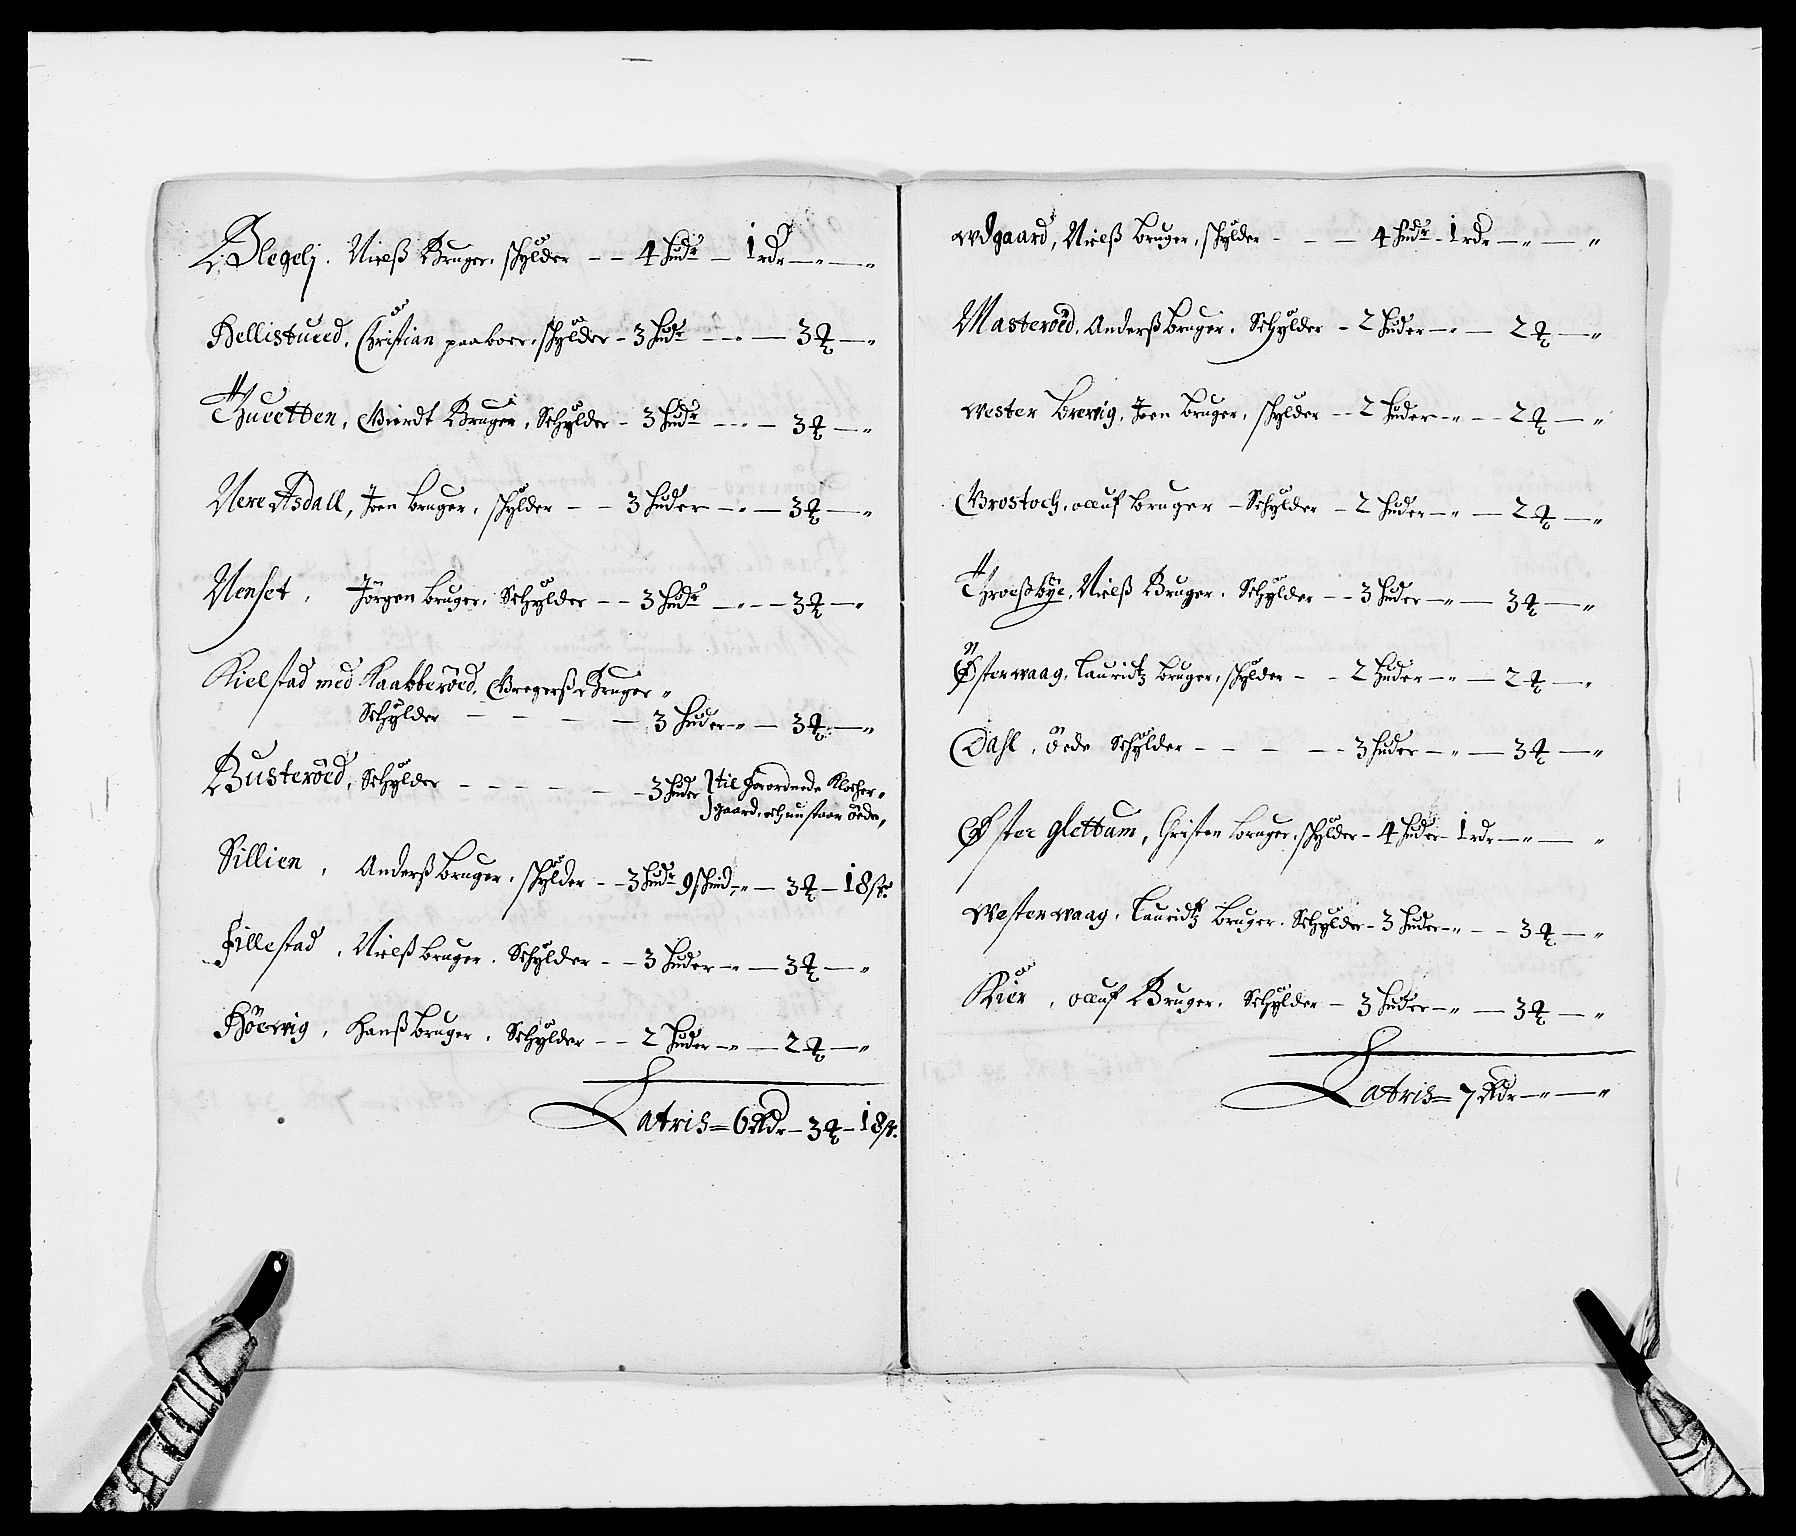 Blegelj. Nielß Bruger, schylder – – 4 hudr – 1 rdr – „ – „
Hellistued, Christian paaboer, schylder – 3 hudr – „ – 3 ꝗ – „
Thuectten, Gierdt Bruger, Schylder – 3 hudr – „ – 3 ꝗ – „
Nere Asdall, Joen bruger, schylder – – 3 huder – „ – 3 ꝗ – „
Nenset, Jörgen bruger, Schylder – – 3 hudr – „ – 3 ꝗ – „
Kielstad med Kaabberöed, Gregerß Bruger „
Schylder – – – – 3 huder – „ – 3 ꝗ – „
Busteröed, Schylder – – – – – – 3 huder til Forordnede Klocher„
gaard, och nu staar öede,
Sillien, Anderß bruger, schylder – – 3 hudr 9 schind – „ – 3 ꝗ – 18 sk.
Fillestad, Nielß bruger, Schylder – – 3 huder – „ – 3 ꝗ – „
Höewig, Hanß bruger, Schylder – – 2 huder – „ – 2 ꝗ – „
Latris = 6 Rdr – 3 ꝗ – 18 sk.
wdgaard, Nielß bruger, schylder – – – 4 hudr – 1 rdr – „ – „
Masteröed, Anderß bruger, Schylder – 2 huder – „ – 2 ꝗ – „
wester brewig, Joen bruger, schylder – – 2 huder – „ – – 2 ꝗ – „
Grostoch, oluf bruger – Schylder – 2 huder – „ – 2 ꝗ – „
Throeßbÿe, Nielß Bruger, Schylder – – 3 huder – „ – 3 ꝗ – „
Østerwaag, Lauridtz bruger, schylder – – 2 huder – „ – 2 ꝗ – „
Dahl, öede Schylder – – – – – 3 huder – „ – 3 ꝗ – „
Øster glettum, Christen bruger, schylder – 4 huder 1 rdr – „ – „
Westerwaag, Lauridtz bruger, Schylder – 3 huder – „ – – 3 ꝗ – „
Kier, oluf Bruger, Schylder – 3 huder – „ – 3 ꝗ – „
Latris = 7 Rdr – „ – „